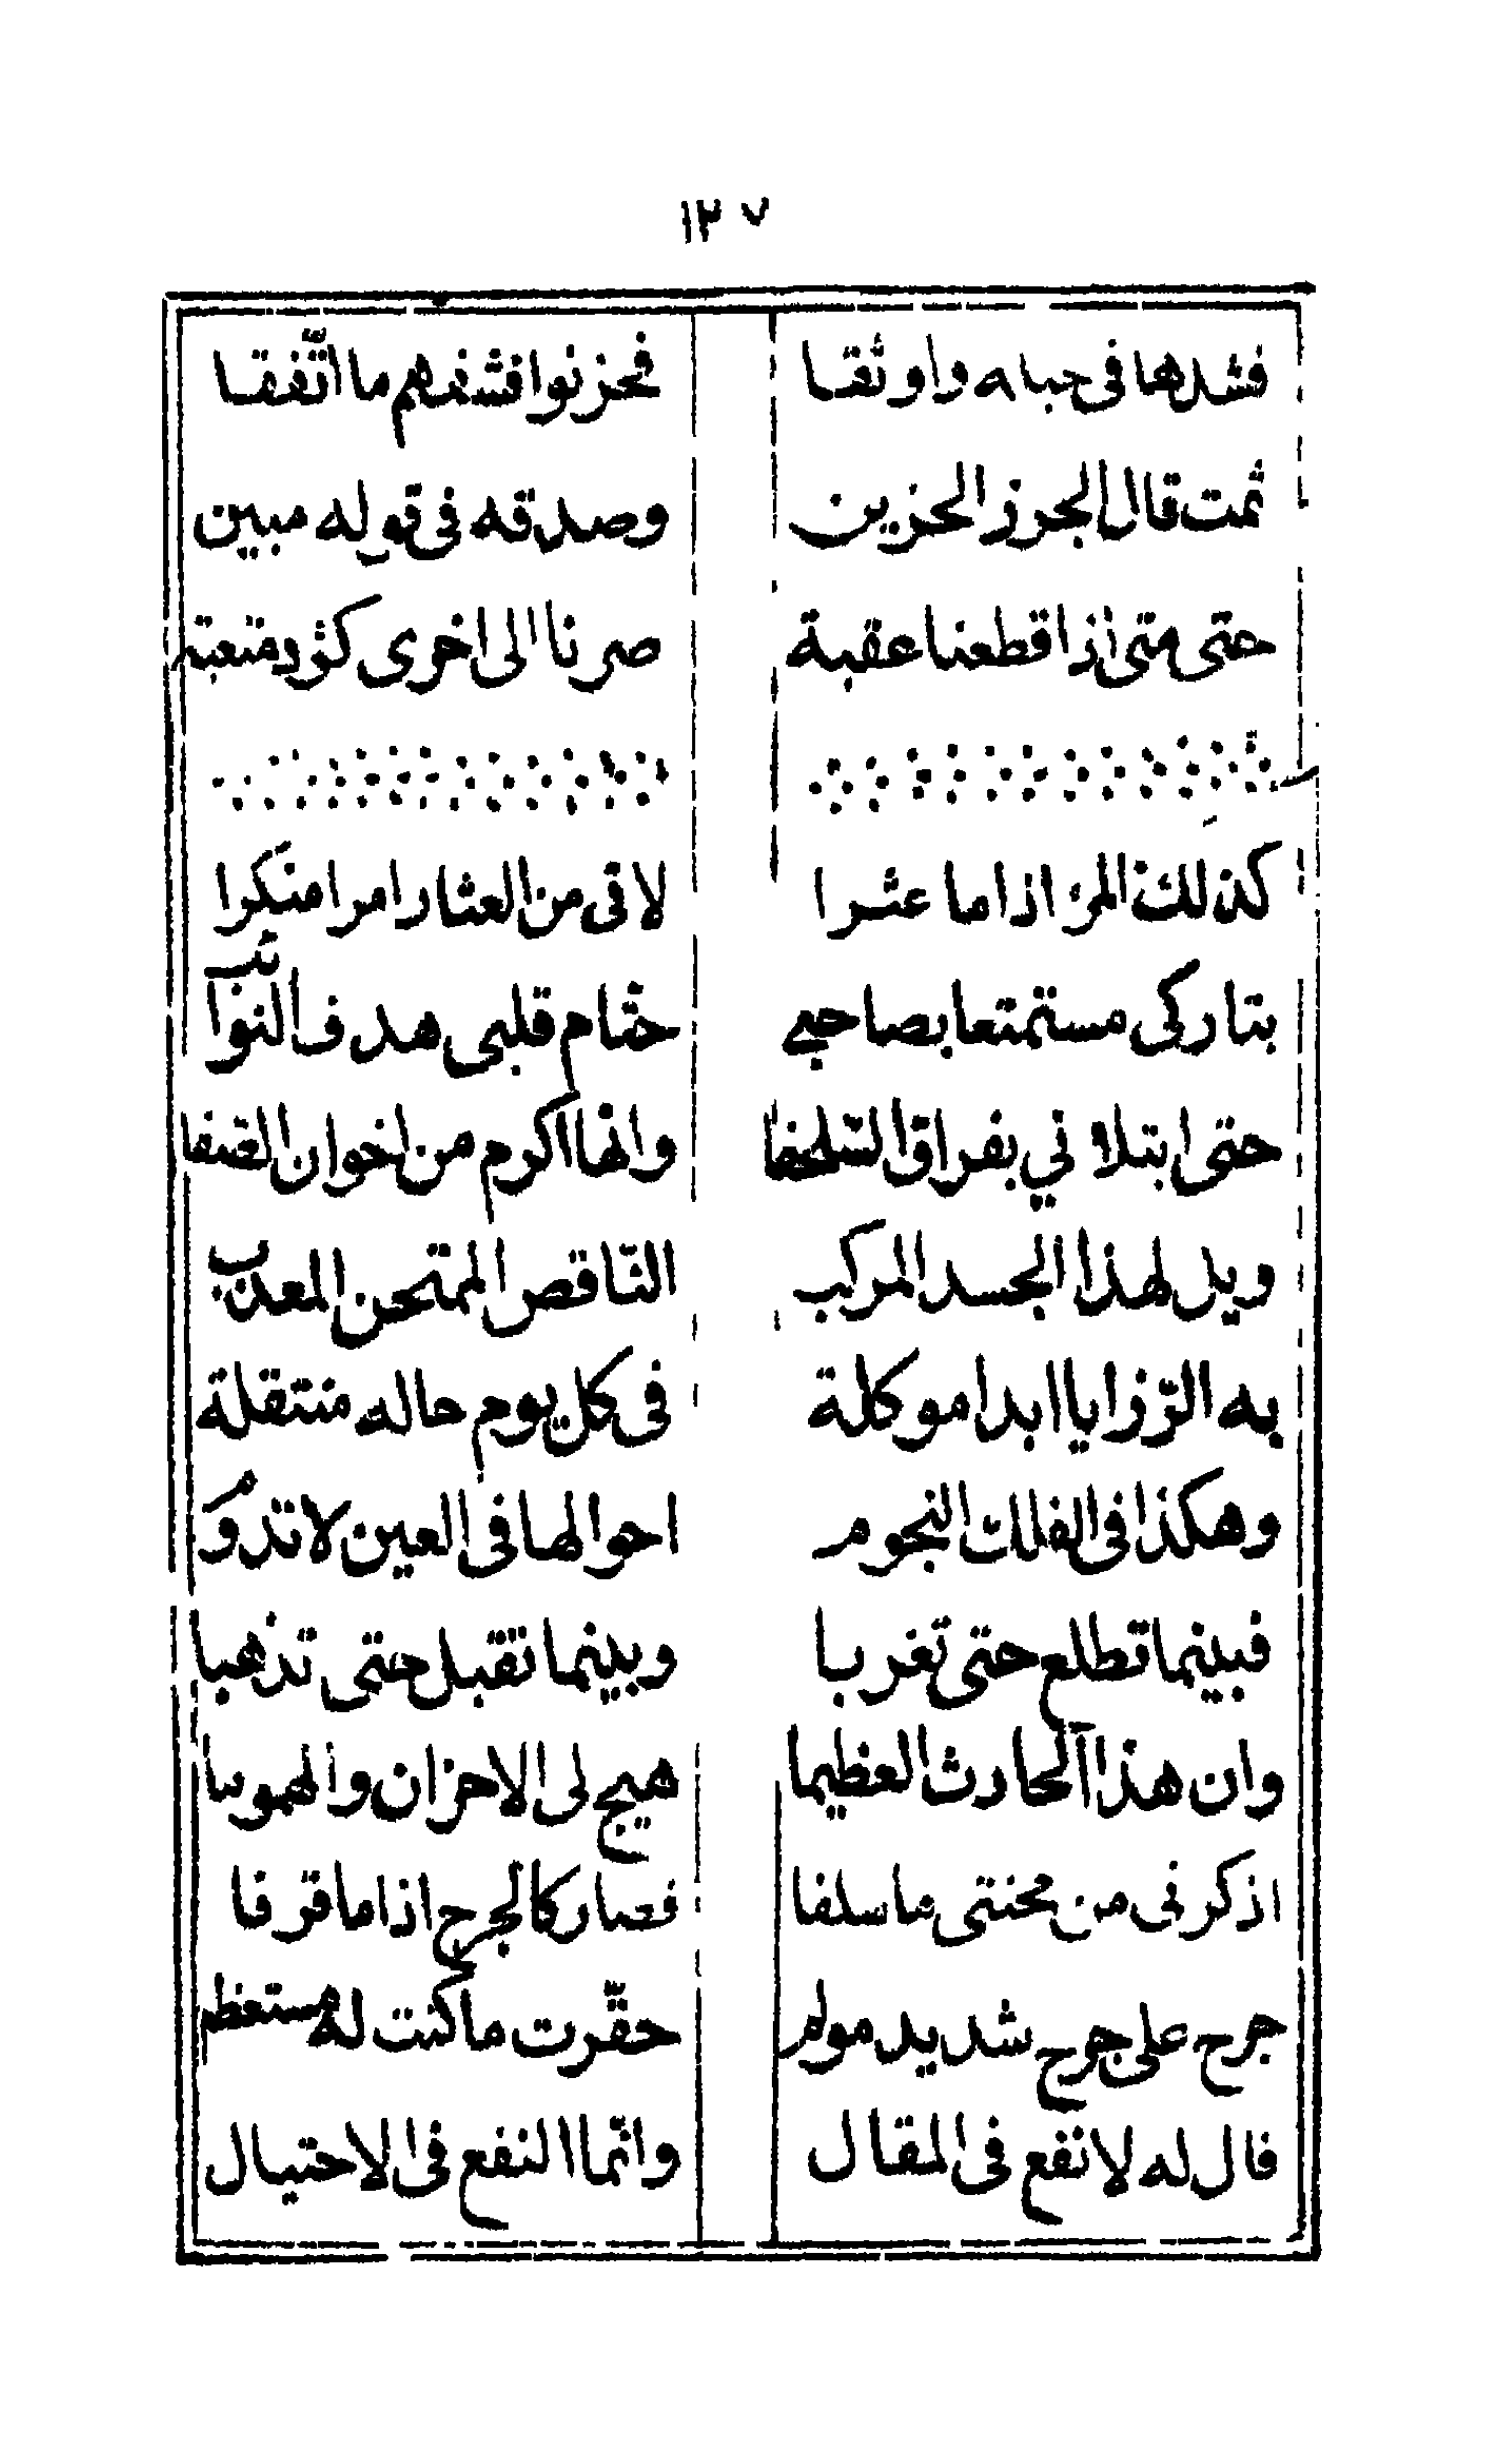 ١٣٧
فشدها فى حباله واوثقا فحزنوا فشفهم ما اتّفقا
ثمت قال الجرذ الحزين وصدقه فى قوله مبين
حتى متى اذا قطعنا عقبة صرنا الى اخرى كئود متعبة
كذلك المرء اذا ما عثرا لاقى من العثار امرا منكرا
بتاركى مستمتعا بصاحبي حتّام قلبى هدف النوائب
حتى ابتلانى بفراق السّلحفا وانها اكرم من اخوان الصّفا
ويل لهذا الجسد المركب النّاقص الممتحن المعذب
به الرّزايا ابدا موكلة فى كلّ يوم حاله منتقلة
وهكذا فى الفلك النجوم احوالها فى العين لا تدوم
فبينما تطلع حتى تغربا وبينما تقبل حتى تذهبا
وان هذا الحادث العظيما هيج لى الاحزان والهموما
اذكرنى من محنتى ما سلفا فصار كالجرح اذا ما قرفا
جرح على جرح شديد مولم حقّرت ما كنت له مستعظم
قال له لا نفع فى المقال وانّما النفع فى الاحتيال